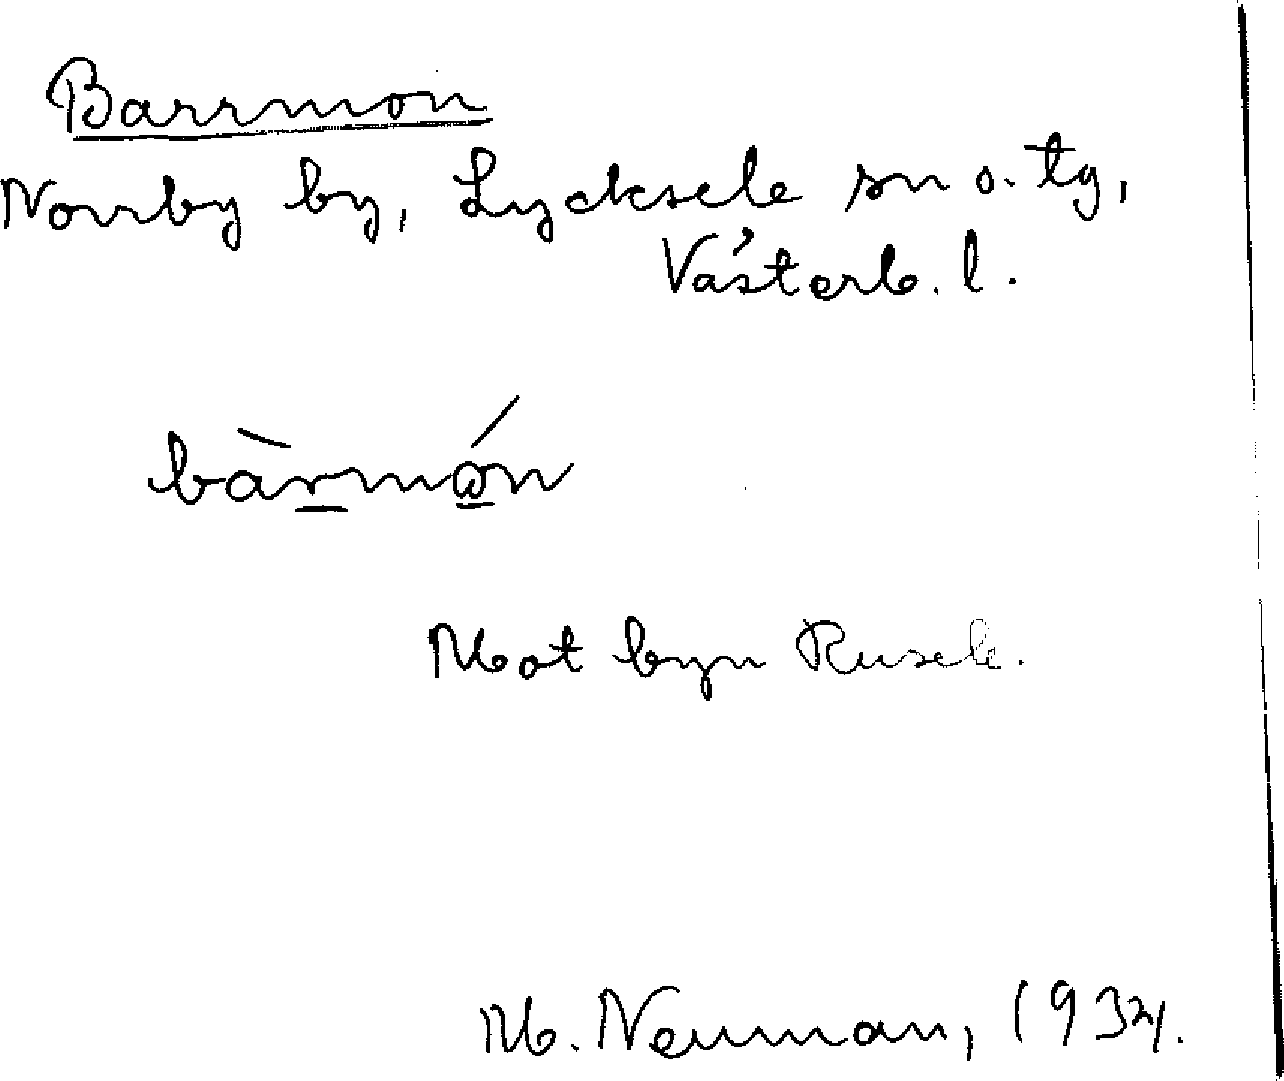 Barrmon
Norrby by, Lycksele sn o. tg,
Västerb. l.
bàrmán
Mot byn Rusele.
M. Neuman, 1934.